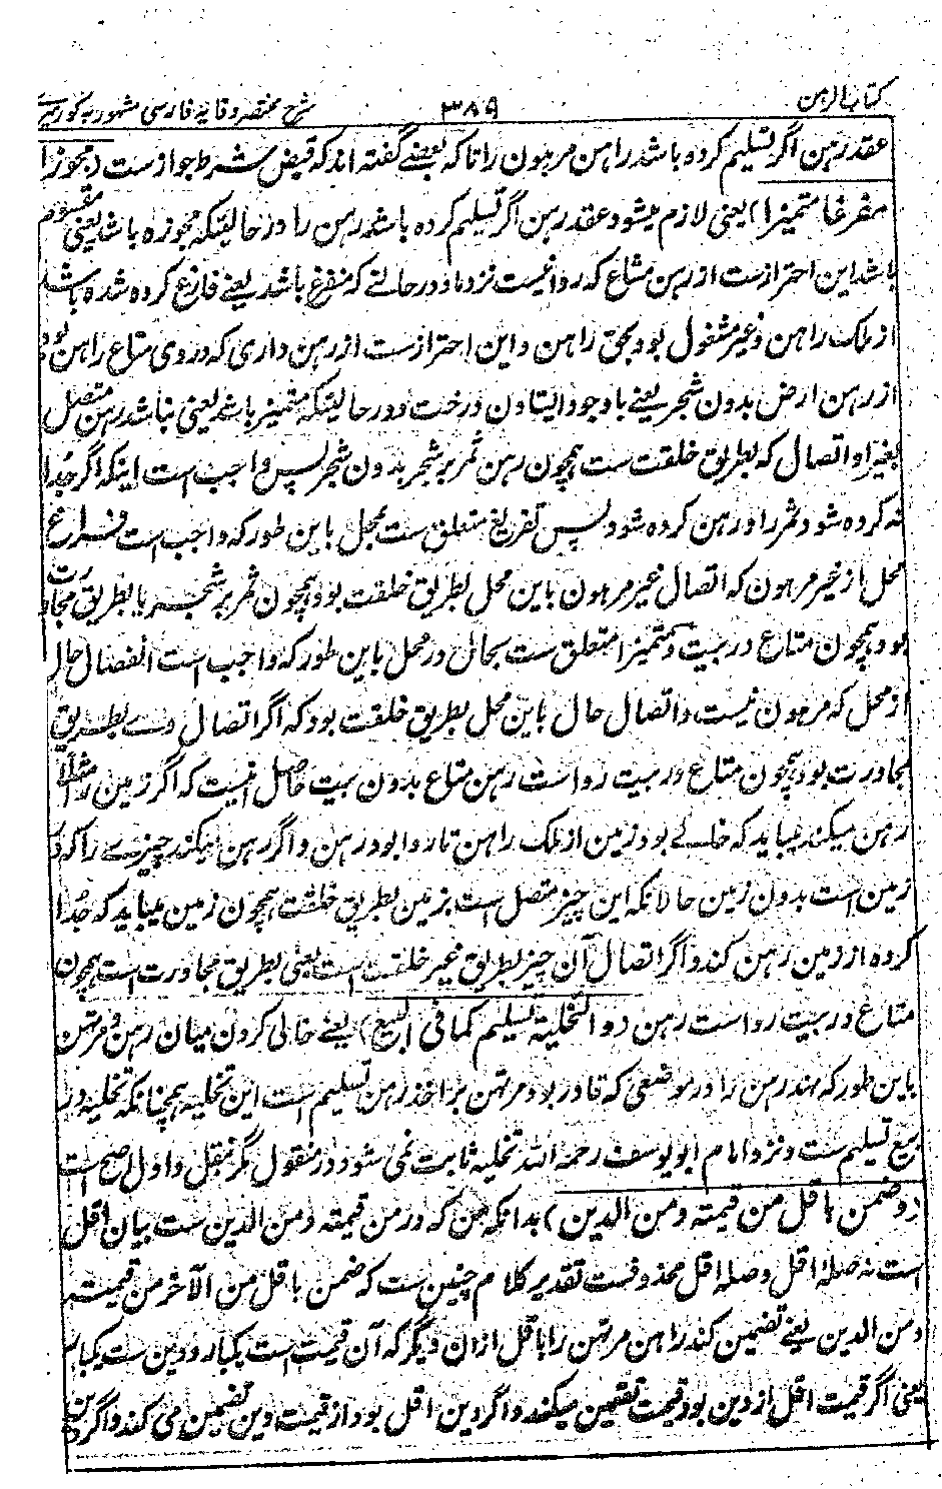 کتاب الرهن ۳۸۹ شرح مختصر وقایه فارسی مشهور به کور میر
عقد رهن اگر تسلیم کرده باشد راهن مرهون را تا که بعضے گفته اند که قبض شرط جواز ست (محوزا
مفرغا متمیزا) یعنی لازم میشود عقد رهن اگر تسلیم کرده باشد رهن را در حالیتکه محوزه باشد یعنی مقسوم
باشد این احتراز ست از رهن مشاع که روا نیست نزد ما و در حالتے که مفرغ باشد یعنے فارغ کرده شده باشد
از ملک راهن و غیر مشغول بود بحق راهن و این احتراز ست از رهن داری که در وی متاع راهن بود و
از رهن ارض بدون شجر یعنے با وجود ایستاون درخت و در حالیتکه متمیز باشد یعنی نباشد رهن متصل
بغیر او اتصال که بطریق خلقت ست همچون رهن ثمر بر شجر بدون شجر پس واجب است اینکه اگر جدا
نه کرده شود ثمر را و رهن کرده شود پس تفریغ متعلق ست بمحل باین طور که واجب است فراغ
محل از غیر مرهون که اتصال غیر مرهون باین محل بطریق خلقت بود همچون ثمر بر شجر یا بطریق مجاورت
بود همچون متاع در بیت و متمیزا متعلق ست بحال در محل باین طور که واجب است انفصال حال
از محل که مرهون نیست و اتصال حال باین محل بطریق خلقت بود که اگر اتصال وے بطریق
مجاورت بود همچون متاع در بیت روا است رهن متاع بدون بیت حاصل انیست که اگر زمین را مثلا
رهن میکند میباید که خالے بود زمین از ملک راهن تا روا بود رهن و اگر رهن میکند چیزے را که در
زمین است بدون زمین حالانکه این چیز متصل است بزمین بطریق خلقت همچون زمین میباید که جدا
کرده از زمین رهن کند و اگر اتصال آن چیز بطریق غیر خلقت است یعنی بطریق مجاورت است همچون
متاع در بیت روا ست رهن (و التخلیة تسلیم کما فی البیع) یعنے خالی کردن میان رهن و مرتهن
باین طور که بنهد رهن را در موضعی که قادر بود مرتهن بر اخذ رهن تسلیم است این تخلیه همچنانکه تخلیه در
بیع تسلیم ست و نزد امام ابو یوسف رحمه الله تخلیه ثابت نمی شود در منقول مگر بنقل و اول اصح است
(و ضمن باقل من قیمته و من الدین) بدانکه من که در من قیمته و من الدین ست بیان اقل
است نه صلهٔ اقل و صلهٔ اقل محذوفست تقدیر کلام چنین ست که ضمن باقل من الآخر من قیمته
و من الدین یعنے تضمین کند راهن مرتهن را باقل از ان دیگر که آن قیمت است یکبار و دین ست یکبار
یعنی اگر قیمت اقل از دین بود قیمت تضمین میکند و اگر دین اقل بود از قیمت دین تضمین می کند و اگر رهن